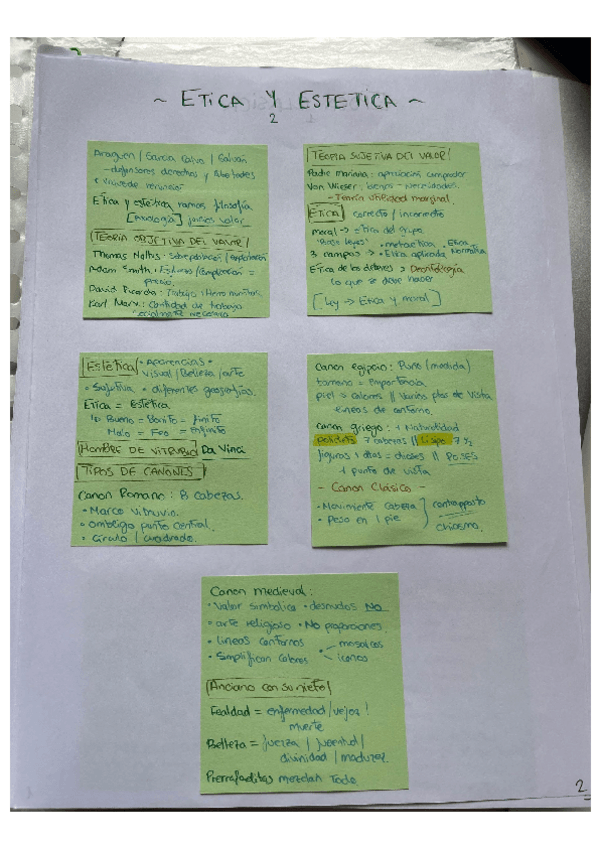 ~ ETICA Y ESTETICA ~
2
Aranguren | García Calvo | Galván
- defensores derechos y libertades
Etica y estética ramas filosofía
[Axiología] juicios valor
TEORIA OBJETIVA DEL VALOR
Thomas Maltus - Sobrepoblación / explotación
Adam Smith: Esfuerzo / complicación =
precio.
David Ricardo: Trabajo
Karl Marx: Cantidad de trabajo
socialmente necesario
TEORIA SUJETIVA DEL VALOR
Padre Mariana: apreciación comprador
Von Wieser: bienes - necesidades.
- Teoría utilidad marginal.
ETICA correcto / incorrecto
moral -> = Etica del grupo
3 campos -> • metaetica • Etica aplicada • Etica Normativa
Etica de los deberes > Deontología
lo que se debe hacer
[Ley -> Etica y moral]
Estética • Apariencias •
visual / Belleza / arte
• Sujetiva • diferentes geografías.
Etica = Estética
Bueno = Bonito = finito
Malo = Feo = Infinito
HOMBRE DE VITRUBIO Da Vinci
TIPOS DE CANONES
Canon Romano: 8 cabezas.
• Marco Vitruvio.
• Ombligo punto central.
• Circulo / cuadrado.
Canon egipcio: Puño (medida)
tamaño = Importancia
piel > colores || Varios ptos de vista
lineas de contorno.
Canon griego: + Naturalidad
7 cabezas || Lisipo 7 ½
figuras = dioses || POSES
+ punto de vista
- Canon Clásico -
• Movimiento cabeza
• Peso en 1 pie
contrapposto
chiasmo.
Canon medieval:
• Valor simbolica • desnudos NO
• arte religioso • No proporciones.
• Lineas contornos - mosaicos
• Simplifican colores - iconos
Anciano con su nieto
Fealdad = enfermedad / vejez /
muerte
Belleza = fuerza / juventud /
divinidad / madurez
Prerrafaelitas mezclan todo.
2